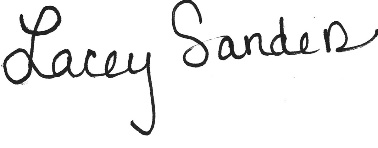 Lacey Sanders